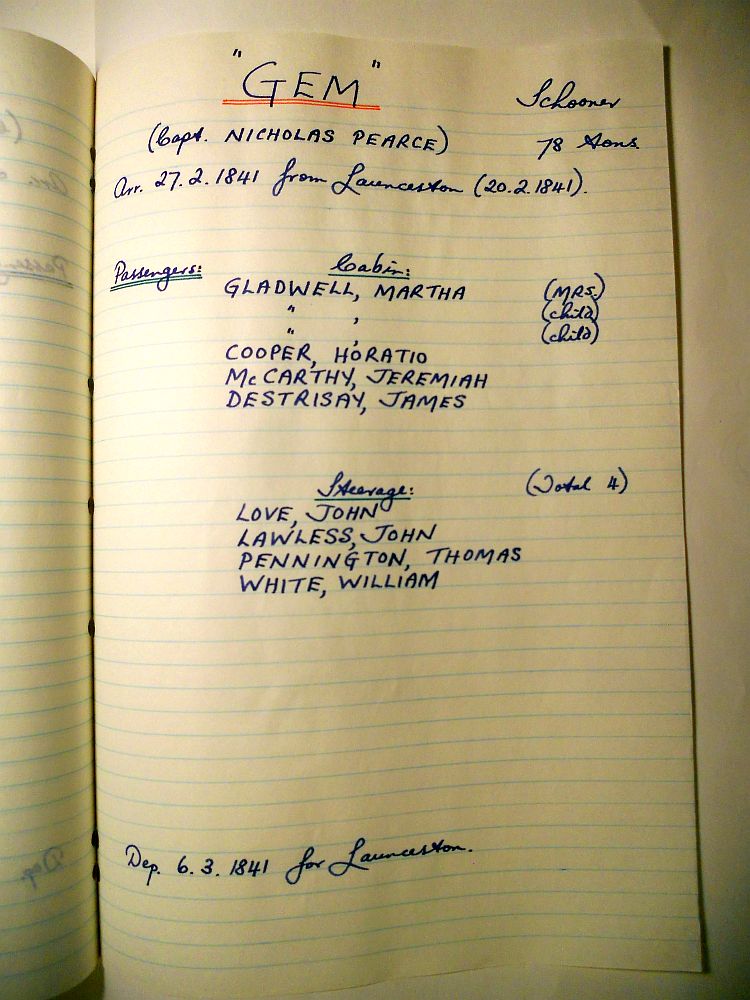 "GEM" Schooner
(Capt. NICHOLAS PEARCE) 78 Tons.
Arr. 27.2.1841 from Launceston (20.2.1841).
Passengers: Cabin:
GLADWELL, MARTHA (MRS.)
" , (child)
" , (child)
COOPER, HORATIO
McCARTHY, JEREMIAH
DESTRISAY, JAMES
Steerage: (Total 4)
LOVE, JOHN
LAWLESS, JOHN
PENNINGTON, THOMAS
WHITE, WILLIAM
Dep. 6.3.1841 for Launceston.